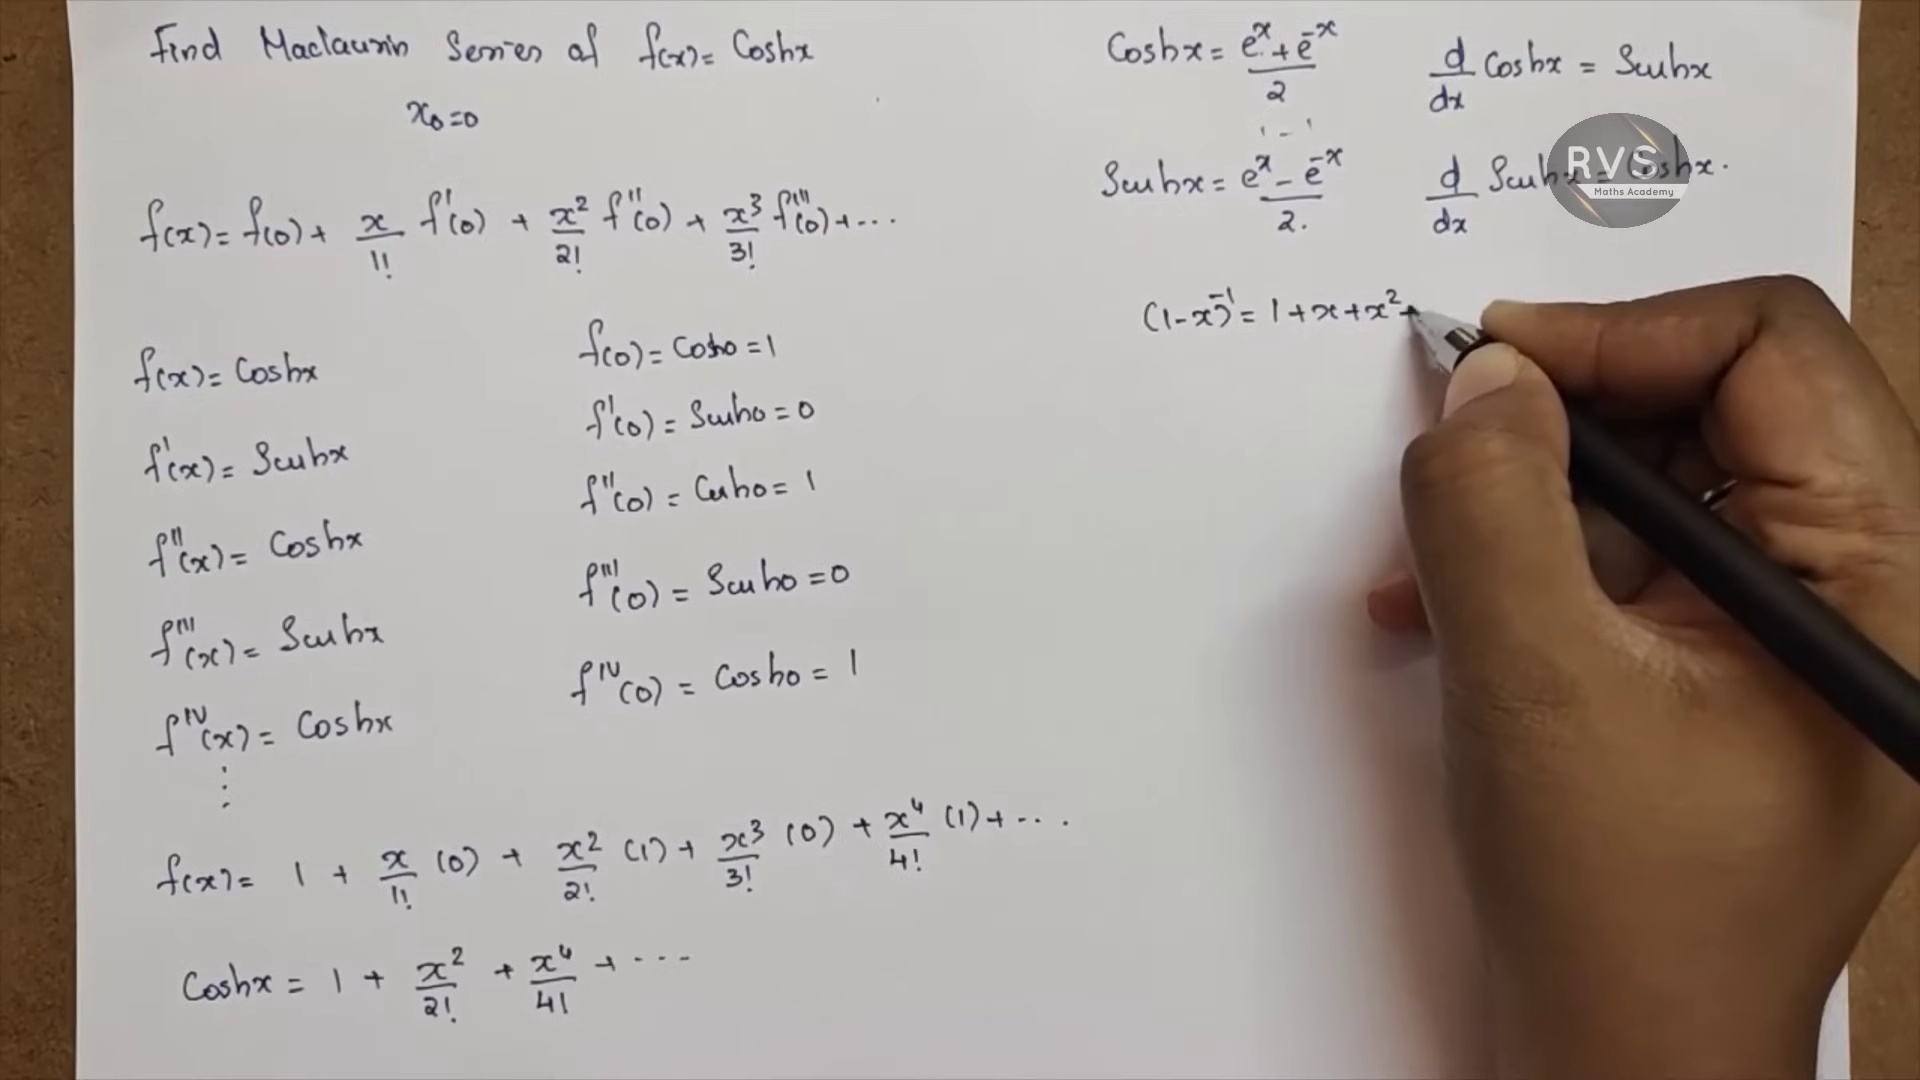 Find Maclaurin Series of f(x) = Coshx
x₀ = 0
f(x) = f(0) + x/1! f'(0) + x²/2! f''(0) + x³/3! f'''(0) + ...
f(x) = Coshx
f'(x) = Sinhx
f''(x) = Coshx
f'''(x) = Sinhx
f^IV(x) = Coshx
⋮
f(0) = Cosh0 = 1
f'(0) = Sinh0 = 0
f''(0) = Cosh0 = 1
f'''(0) = Sinh0 = 0
f^IV(0) = Cosh0 = 1
f(x) = 1 + x/1! (0) + x²/2! (1) + x³/3! (0) + x⁴/4! (1) + ...
Coshx = 1 + x²/2! + x⁴/4! + ...
Coshx = (e^x + e^-x)/2
d/dx Coshx = Sinhx
Sinhx = (e^x - e^-x)/2.
d/dx Sinhx = Coshx.
RVS
Maths Academy
(1-x)^-1 = 1 + x + x² +